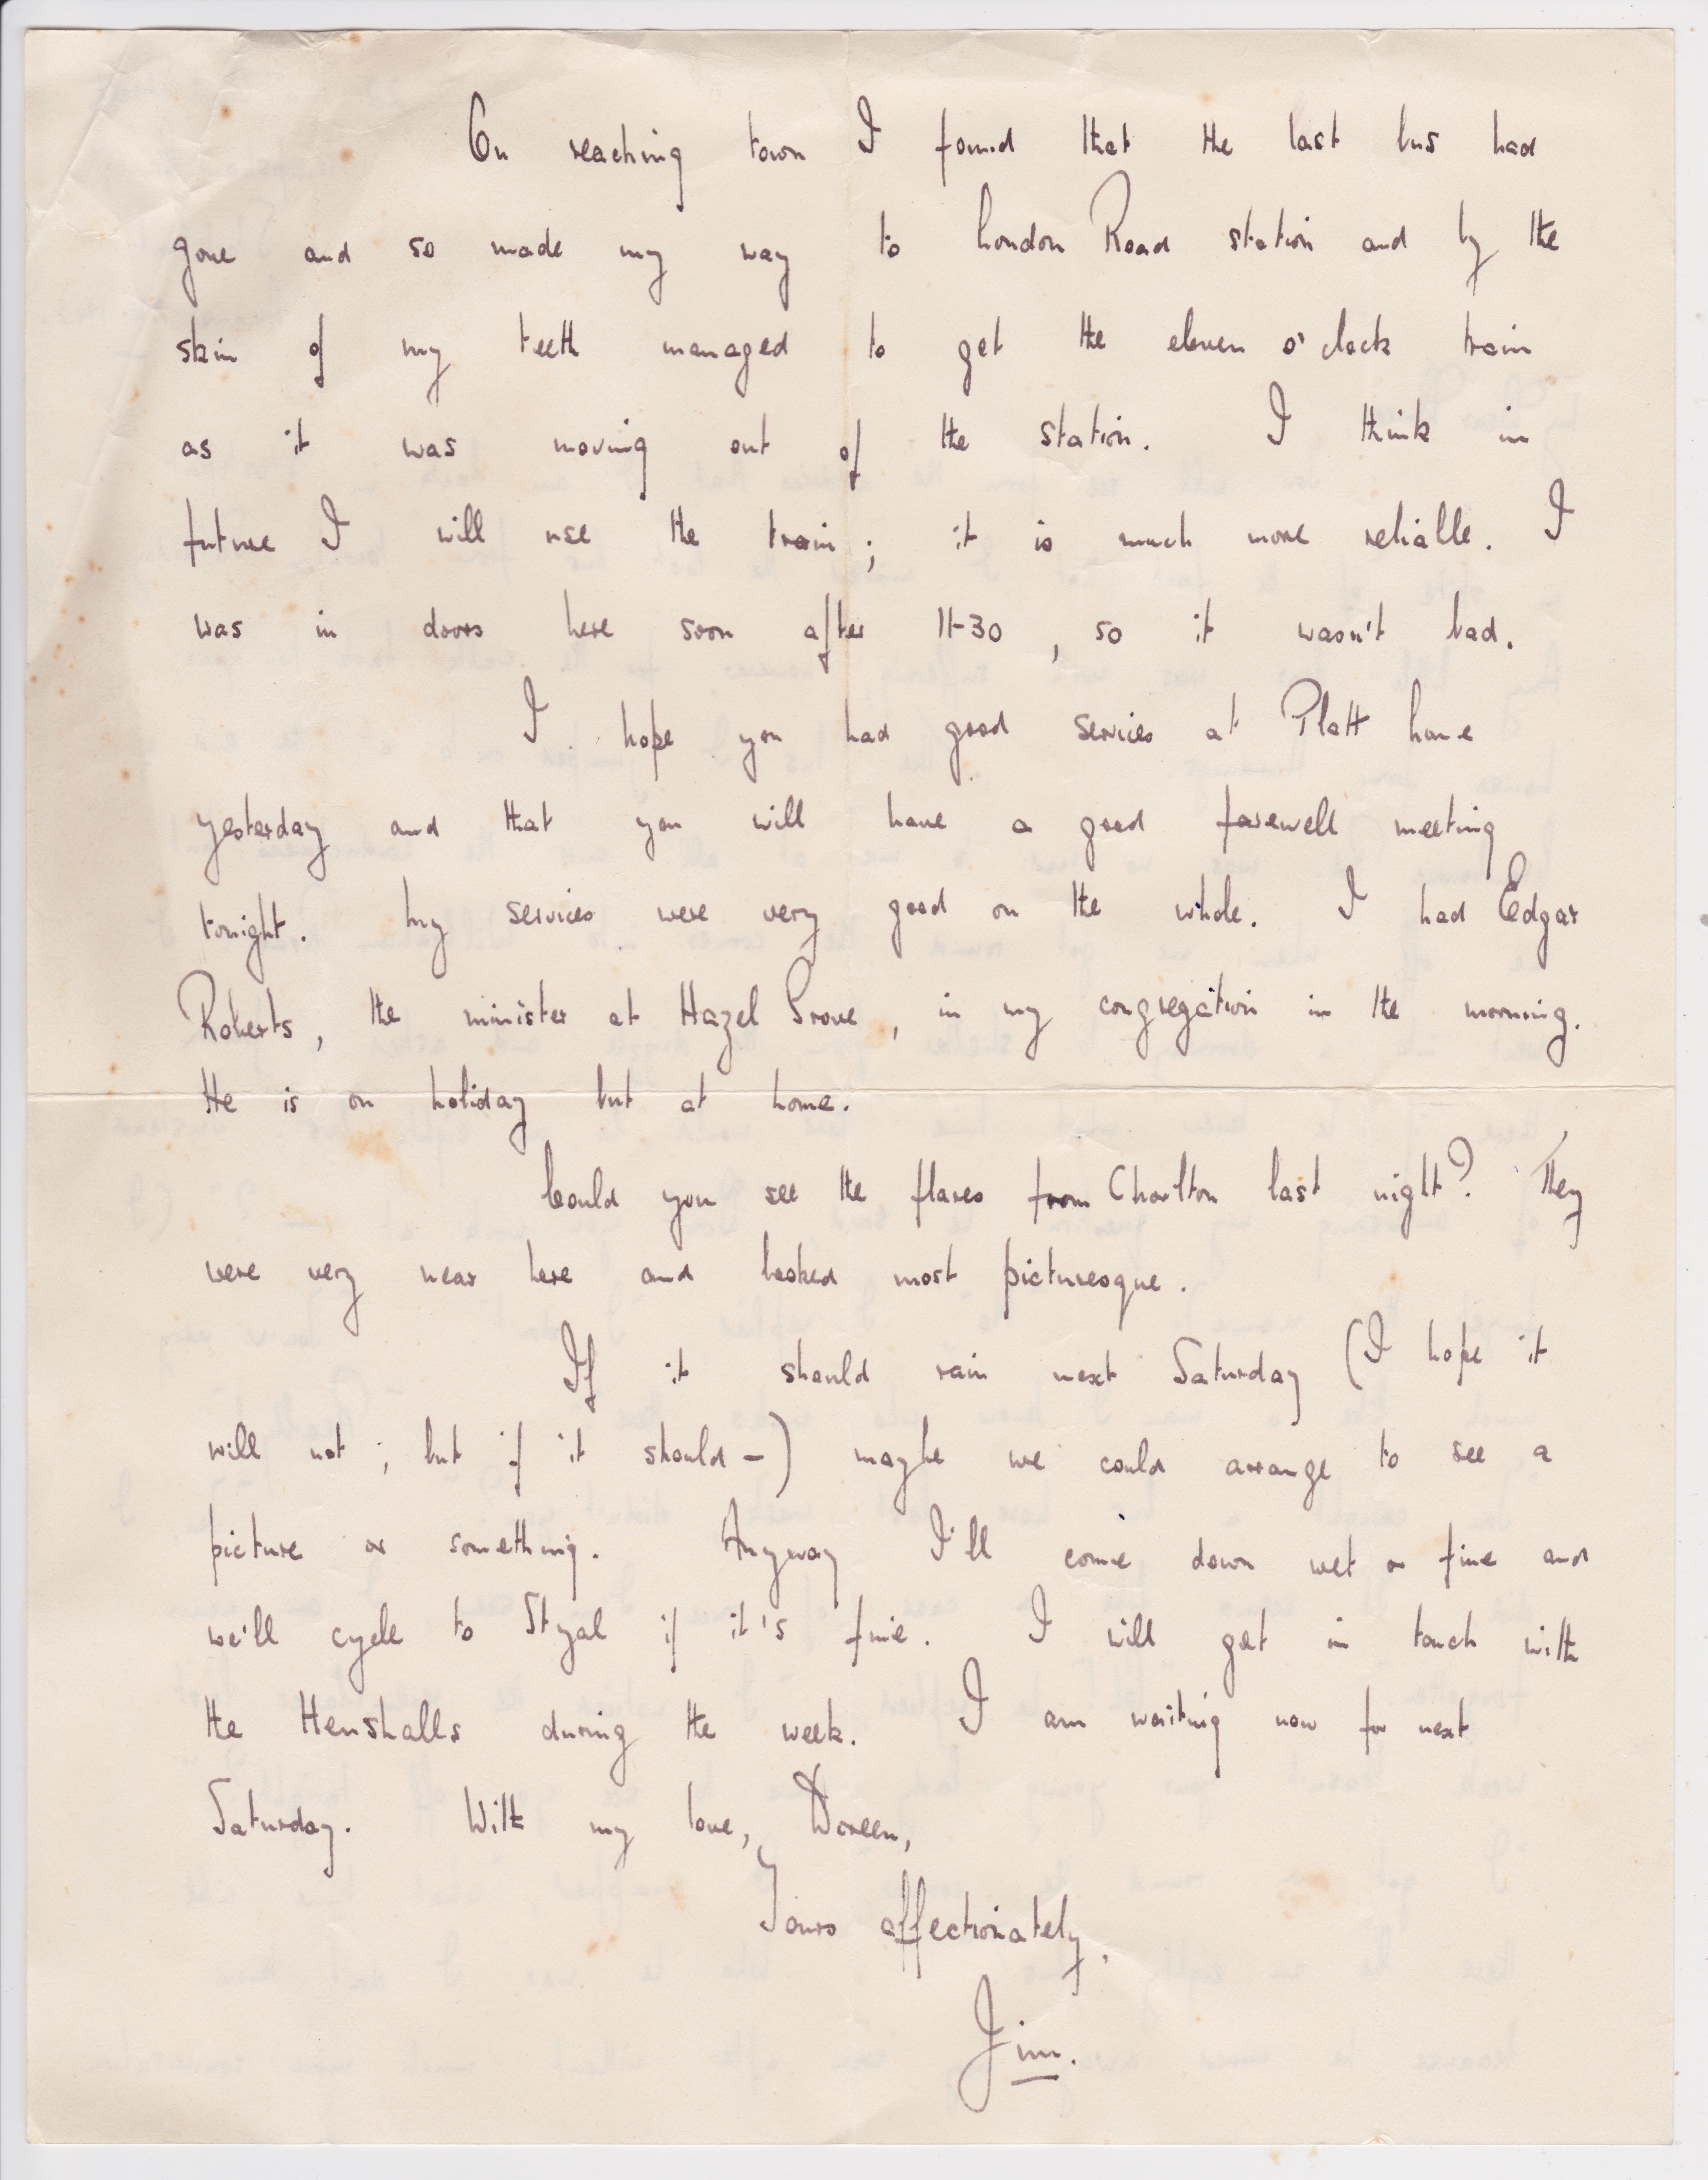 On reaching town I found that the last bus had
gone and so made my way to London Road station and by the
skin of my teeth managed to get the eleven o'clock train
as it was moving out of the station. I think in
future I will use the train; it is much more reliable. I
was in doors here soon after 11-30, so it wasn't bad.
I hope you had good services at Platt Lane
yesterday and that you will have a good farewell meeting
tonight. My services were very good on the whole. I had Edgar
Roberts, the minister at Hazel Grove, in my congregation in the morning.
He is on holiday but at home.
Could you see the flares from Chorlton last night? They
were very near here and looked most picturesque.
If it should rain next Saturday (I hope it
will not; but if it should -) maybe we could arrange to see a
picture or something. Anyway I'll come down wet or fine and
we'll cycle to Styal if it's fine. I will get in touch with
the Henshalls during the week. I am waiting now for next
Saturday. With my love, Doreen,
Yours affectionately,
Jim.